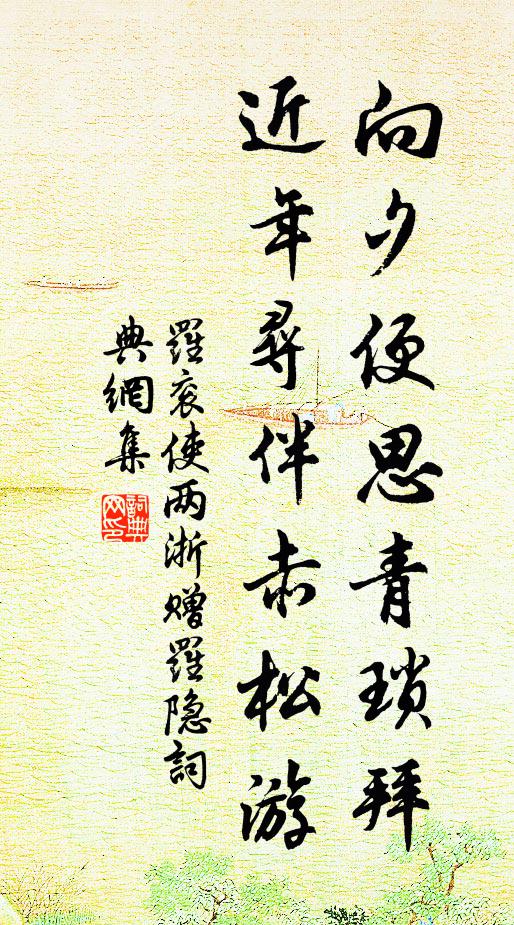 向夕便思青琐拜
近年寻伴赤松游
羅衮使两浙赠羅隐詞
典網集
詞典网印